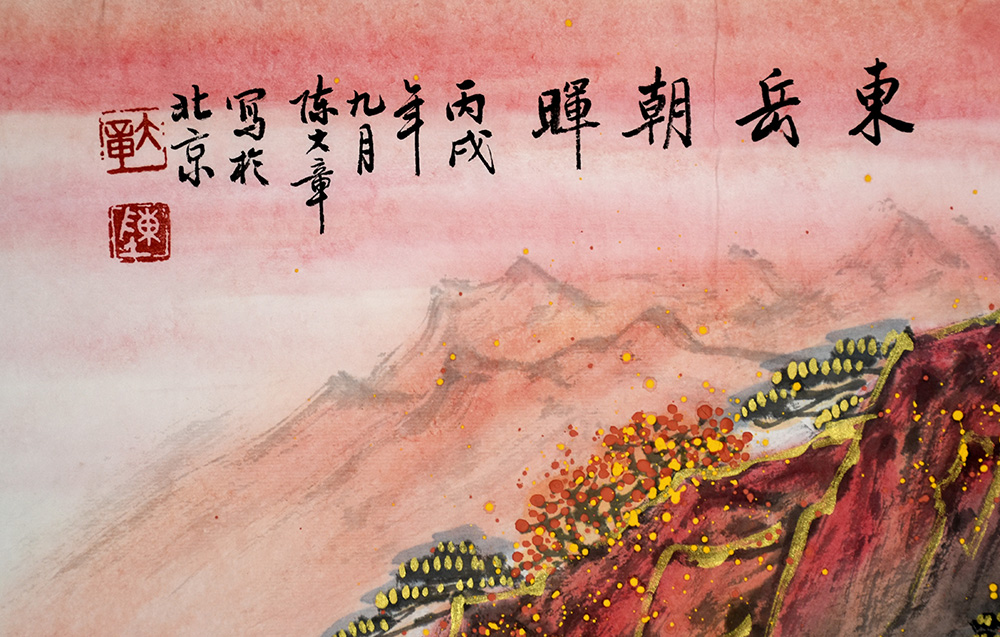 東岳朝暉
丙戌
年
九月
陈大章
写於
北京
大章
陳